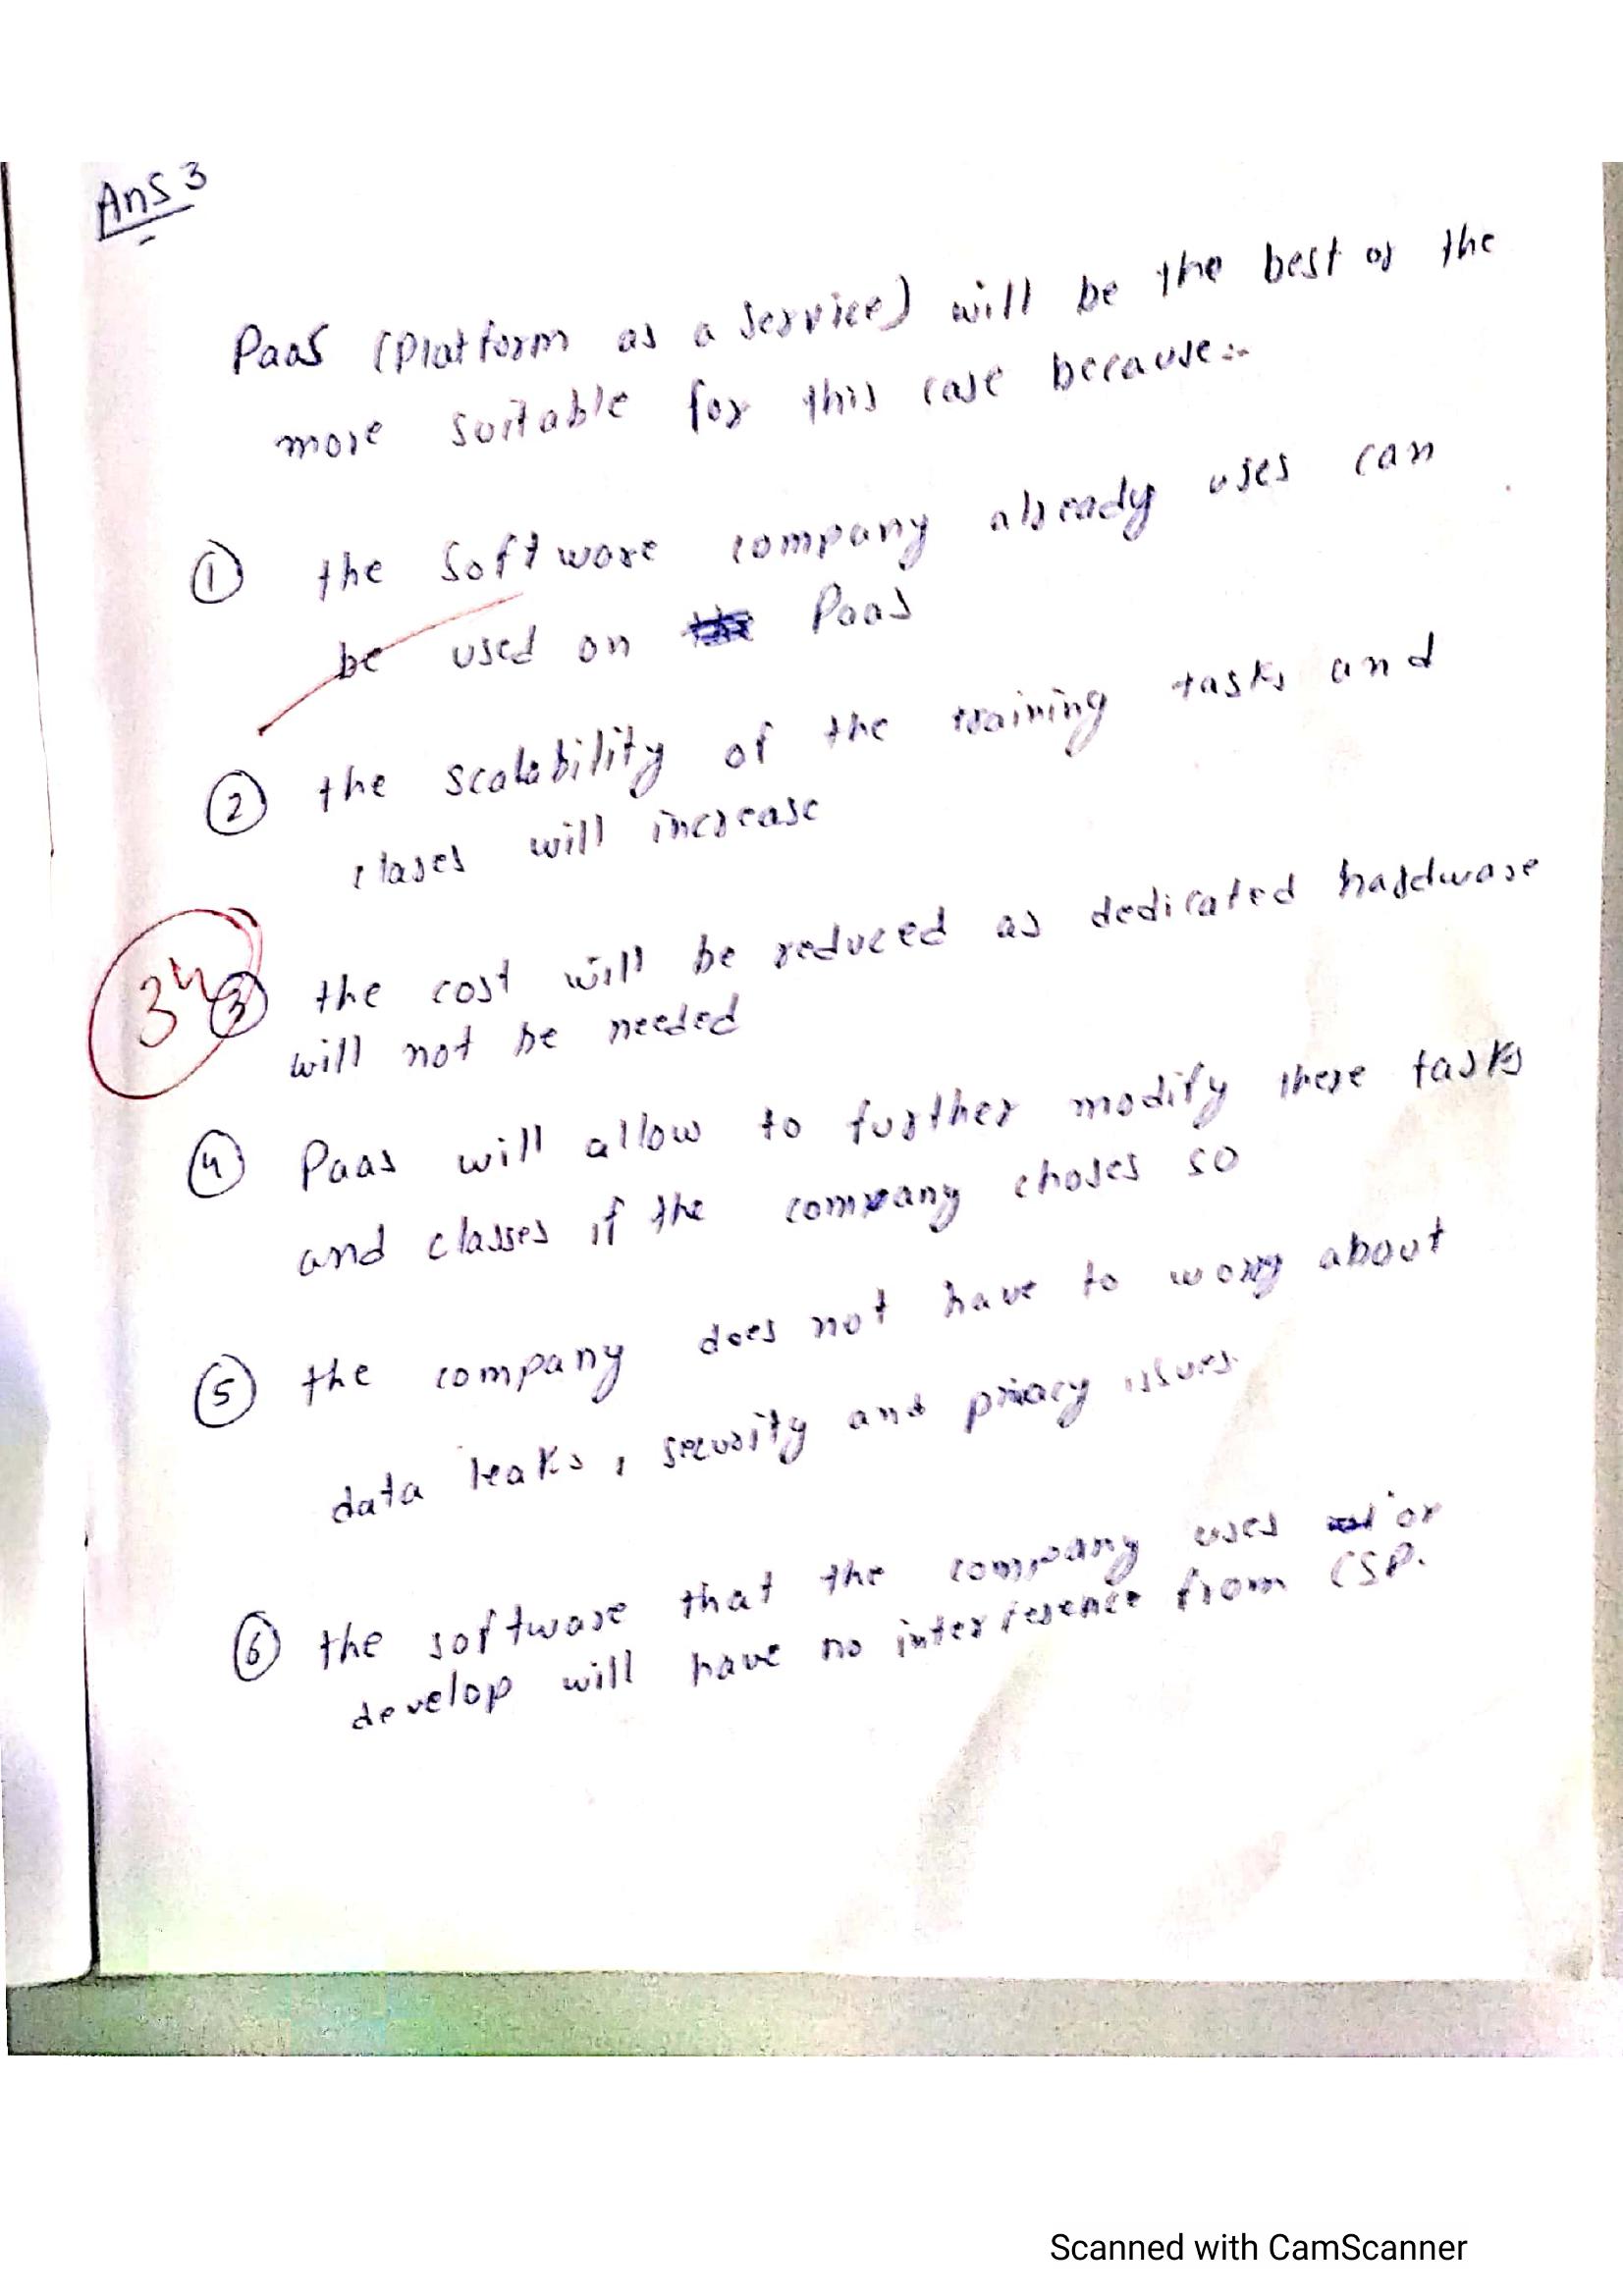 Ans 3
PaaS (Platform as a service) will be the best or the
more suitable for this case because:-
① the software company already uses can
be used on PaaS
② the scalability of the training tasks and
clases will increase
③ the cost will be reduced as dedicated hardware
will not be needed
④ Paas will allow to further modify these tasks
and classes if the company choses so
⑤ the company does not have to worry about
data leaks, security and privacy issues.
⑥ the software that the company uses or
develop will have no interference from CSP.
Scanned with CamScanner